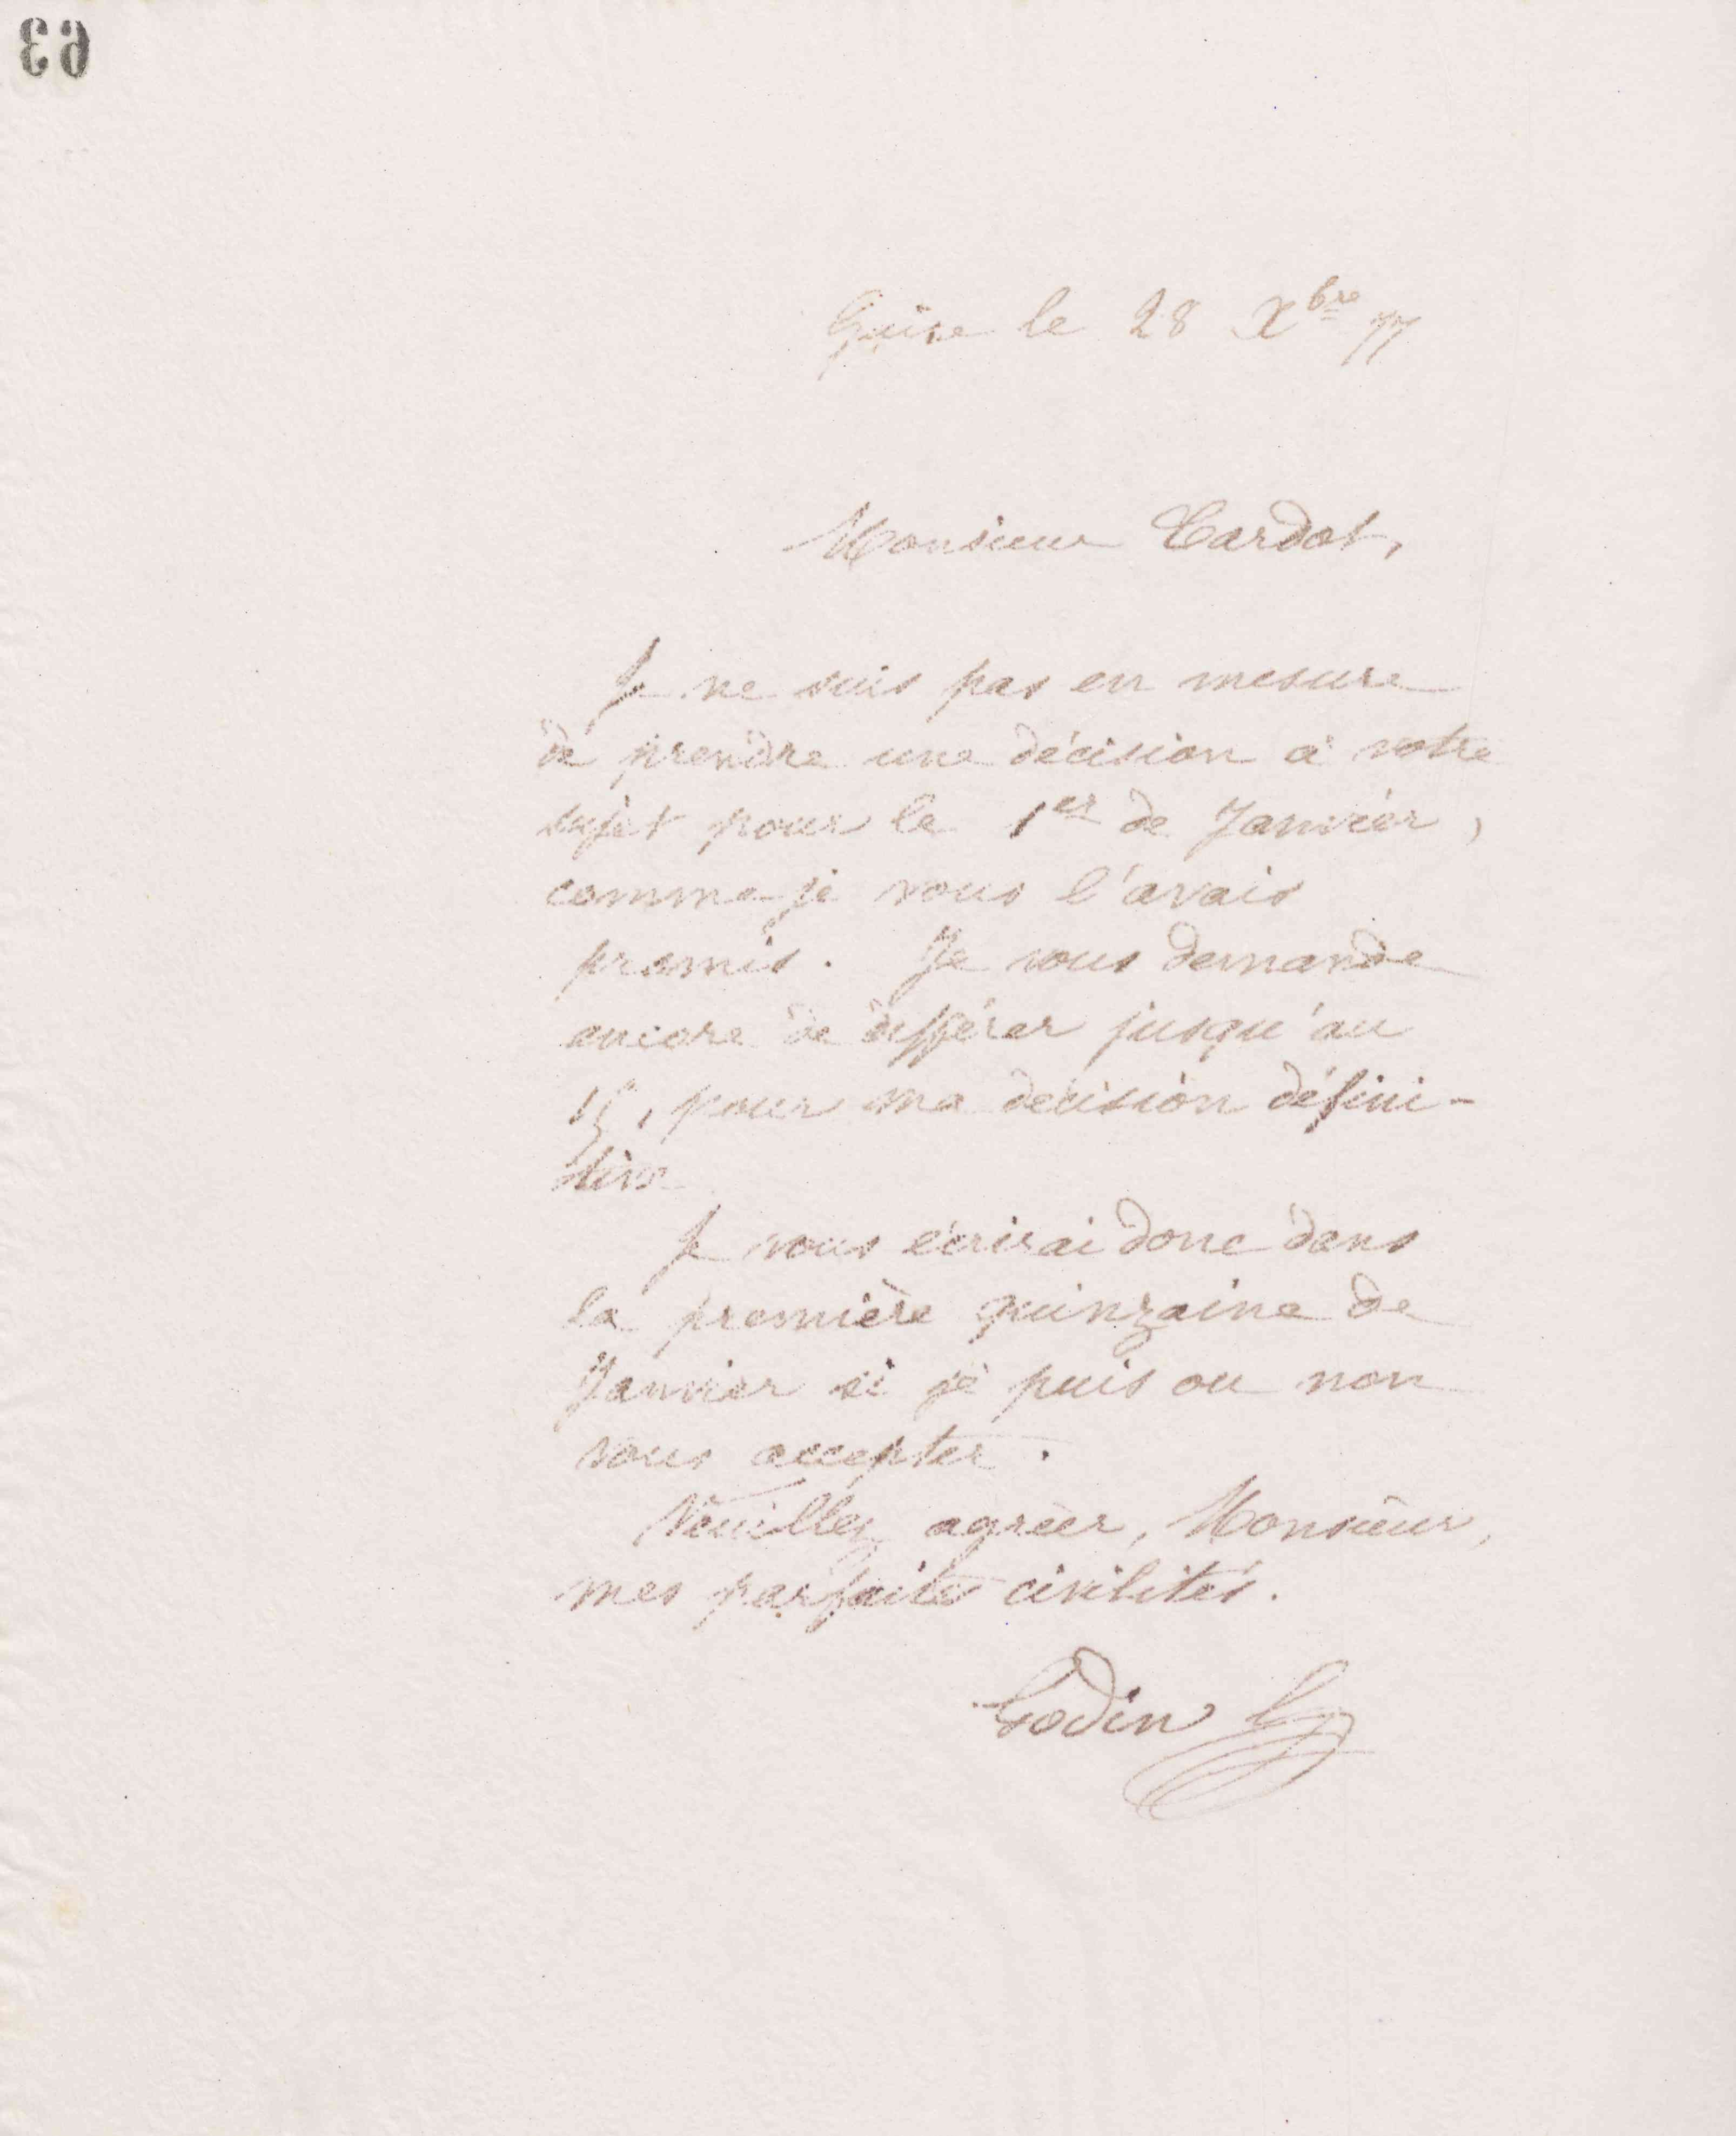 63
Guise le 28 Xbre 77
Monsieur Cardot,
Je ne suis pas en mesure
de prendre une décision à votre
sujet pour le 1er de Janvier,
comme je vous l'avais
promis. Je vous demande
encore de différer jusqu'au
15, pour ma décision défini-
tive
Je vous écrirai donc dans
la première quinzaine de
Janvier si je puis ou non
vous accepter.
Veuillez agréer, Monsieur,
mes parfaites civilités.
Godin